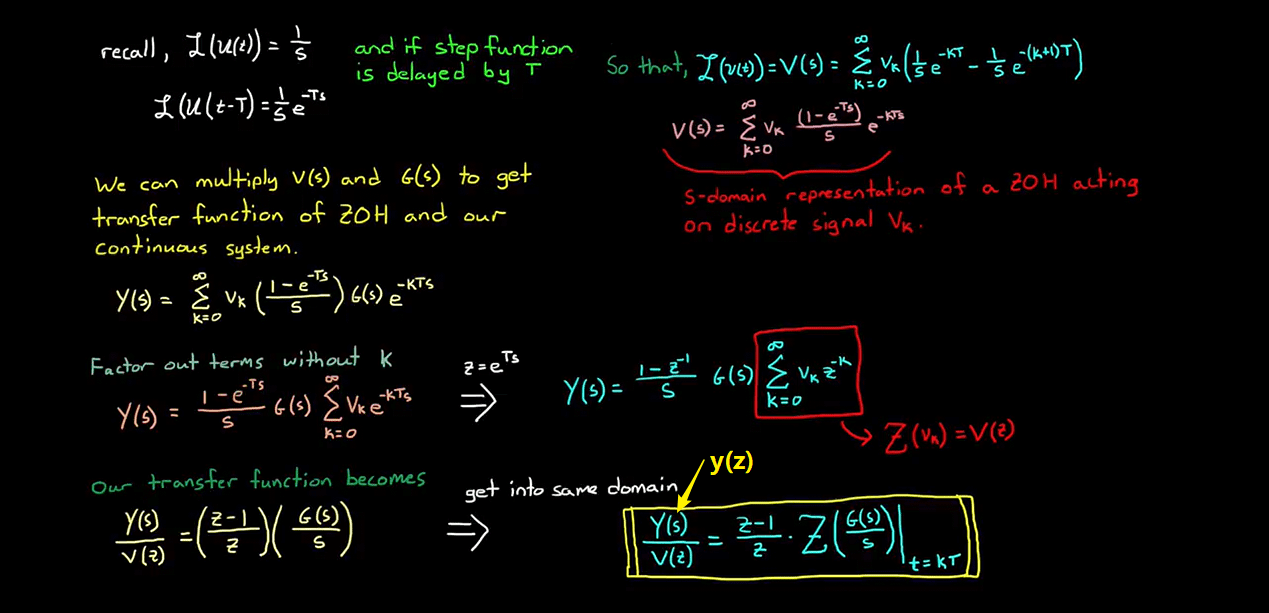 recall, ℒ(u(t)) = 1/s
and if step function
is delayed by T
ℒ(u(t-T) = 1/s e^{-Ts}
So that, ℒ(v(t)) = V(s) = ∑_{k=0}^{∞} v_k (1/s e^{-kT} - 1/s e^{-(k+1)T})
V(s) = ∑_{k=0}^{∞} v_k (1-e^{-Ts})/s e^{-kTs}
s-domain representation of a ZOH acting
on discrete signal v_k.
We can multiply V(s) and G(s) to get
transfer function of ZOH and our
continuous system.
Y(s) = ∑_{k=0}^{∞} v_k ((1-e^{-Ts})/s) G(s) e^{-kTs}
Factor out terms without k
Y(s) = (1-e^{-Ts})/s G(s) ∑_{k=0}^{∞} v_k e^{-kTs}
z = e^{Ts}
⇒
Y(s) = (1-z^{-1})/s G(s) ∑_{k=0}^{∞} v_k z^{-k}
→ Z(v_k) = V(z)
Our transfer function becomes
Y(s)/V(z) = ((z-1)/z) (G(s)/s)
get into same domain
⇒
y(z)
Y(s)/V(z) = (z-1)/z · Z(G(s)/s)|_{t=kT}